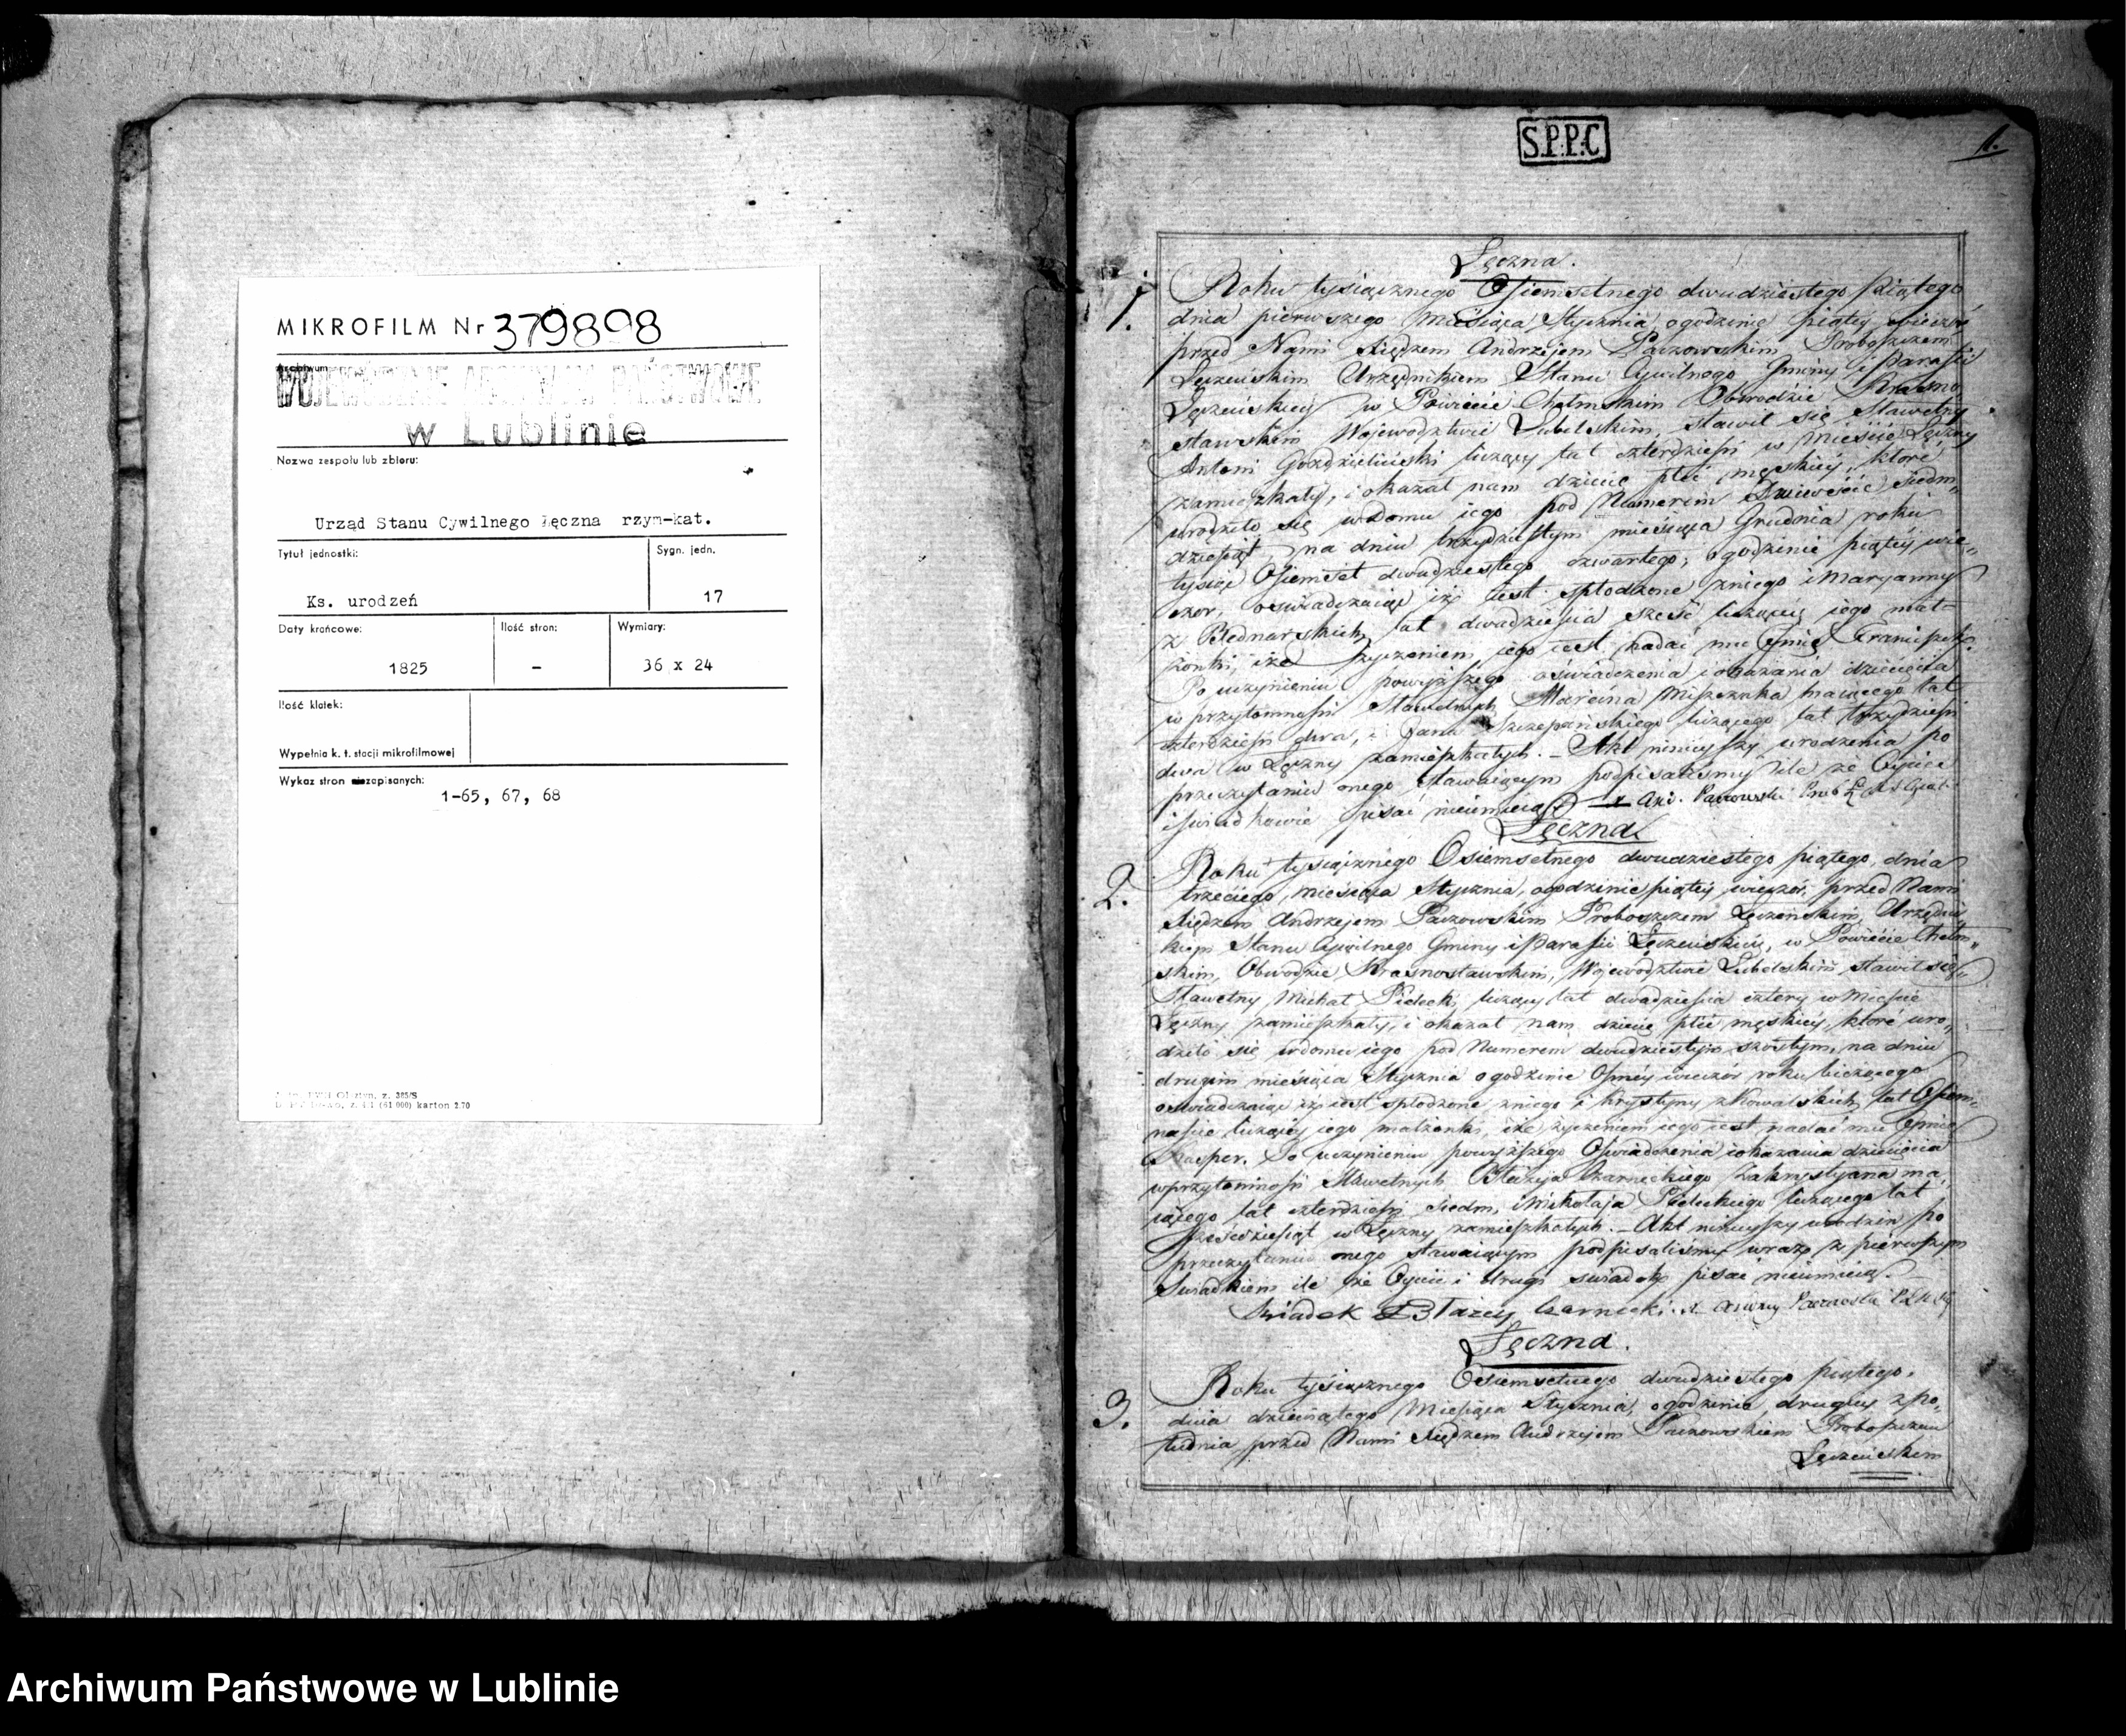 MIKROFILM Nr 379898
Archiwum
WOJEWÓDZKIE ARCHIWUM PAŃSTWOWE
w Lublinie
Nazwa zespołu lub zbioru:
Urząd Stanu Cywilnego Łęczna rzym-kat.
Tytuł jednostki:
Sygn. jedn.
Ks. urodzeń
17
Daty krańcowe:
Ilość stron:
Wymiary:
1825
–
36 x 24
Ilość klatek:
Wypełnia k. t. stacji mikrofilmowej
Wykaz stron zapisanych:
1-65, 67, 68
S.P.P.C
1.
Łęczna.
1.
Roku tysiącznego Osiemsetnego dwudziestego piątego
dnia pierwszego Miesiąca Stycznia, o godzinie piątey wieczor
przed Nami Xiędzem Andrzejem Paczowskim Proboszczem
Łęczeńskim Urzędnikiem Stanu Cywilnego Gminy i Parafii
Łęczeńskiey w Powiecie Chełmskim Obwodzie Krasno
stawskim Woiewodztwie Lubelskim, stawił się Sławetny
Antoni liczący lat czterdzieści w Mieście Łęczny
zamieszkały, i okazał nam dziecię płci męskiey, ktore
urodziło się w domu iego pod Numerem Dwieście siedm„
dziesiąt, na dniu trzydziestym miesiąca Grudnia roku
tysiąc Osiemset dwudziestego czwartego, o godzinie piątey wie„
czor, oswiadczaiąc iż iest spłodzone z niego i Maryanny
z Bednarskich, lat dwadzieścia sześć liczącey iego mał=
żonki, i że życzeniem iego iest nadać mu Imię Franciszek.
Po uczynieniu powyższego oświadczenia i okazania dziecięcia
w przytomności Sławetnych Marcina maiącego lat
czterdzieści dwa, i Jana Szczepańskiego liczącego lat trzydzieści
dwa w Łęczny zamieszkałych. – Akt ninieyszy urodzenia po
przeczytaniu onego stawaiącym podpisaliśmy ile że Oyciec
i świadkowie pisać nieumieią
Łęczna
2.
Roku tysiącznego Osiemsetnego dwudziestego piątego, dnia
trzeciego, miesiąca Stycznia, o godzinie piątey wieczor, przed Nami
Xiędzem Andrzejem Paczowskim Proboszczem Łęczeńskim, Urzędni
kiem Stanu Cywilnego Gminy i Parafii Łęczeńskiey, w Powiecie Chełm„
skim, Obwodzie Krasnostawskim, Woiewodztwie Lubelskim stawił się
Sławetny Michał Pielecki, liczący lat dwadzieścia cztery w Mieście
Łęczny zamieszkały, i okazał nam dziecię płci męskiey, ktore uro„
dziło się w domu iego pod Numerem dwudziestym szostym, na dniu
drugim miesiąca Stycznia o godzinie Osmey wieczor roku bieżącego
oswiadczaiąc iż iest spłodzone z niego i Krystyny z Kowalskich, lat Ośm„
naście liczącey iego małżonki, i że życzeniem iego iest nadać mu Imię
Kasper. Po uczynieniu powyższego Oświadczenia i okazania dziecięcia
w przytomności Sławetnych Błażeja Czarneckiego Zakrystyana ma„
iącego lat czterdzieści siedm, i Mikołaja Pieleckiego liczącego lat
sześćdziesiąt w Łęczny zamieszkałych. – Akt ninieyszy urodzin po
przeczytaniu onego stawaiącym podpisaliśmy wraz z pierwszym
Świadkiem ile że Oyciec i drugi świadek pisać nieumieią. –
Swiadek Błażey Czarnecki.
Łęczna.
3.
Roku tysiącznego Osiemsetnego dwudziestego piątego,
dnia dziewiątego Miesiąca Stycznia, o godzinie drugiey z po„
łudnia, przed Nami Xiędzem Andrzejem Paczowskiem Proboszczem
Łęczeńskiem
Archiwum Państwowe w Lublinie